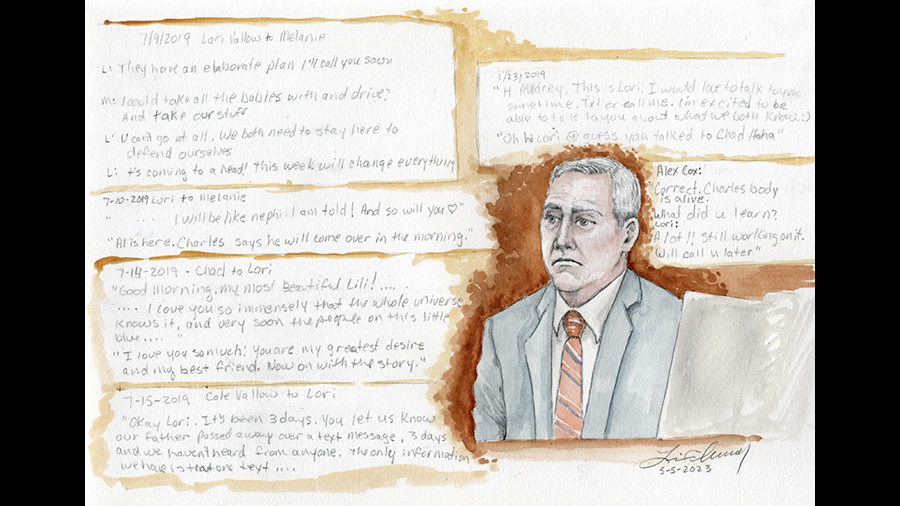 7/9/2019 Lori Vallow to Melanie
L: They have an elaborate plan I'll call you soon
M: I could take all the babies with and drive?
And take our stuff
L: U cant go at all. We both need to stay here to
defend ourselves
L: It's coming to a head! This week will change everything
7-10-2019 Lori to Melanie
" .... I will be like nephi. I am told! And so will you ♡"
"Al is here. Charles says he will come over in the morning."
7-14-2019 - Chad to Lori
"Good Morning, my most Beautiful Lili! .....
.... I love you so immensely that the whole universe
knows it, and very soon the people on this little
blue .... "
"I love you so much! You are my greatest desire
and my best friend. Now on with the story."
7-15-2019 Cole Vallow to Lori
"Okay Lori. It's been 3 days. You let us know
our father passed away over a text message, 3 days
and we haven't heard from anyone. The only information
we have is that one text ....
1/23/2019
"Hi Audrey. This is Lori. I would love to talk to you
sometime. Txt or call me. I'm excited to be
able to talk to you about what we both know. :)
"Oh hi Lori guess you talked to Chad Haha"
Alex Cox:
Correct. Charles body
is alive.
What did u learn?
Lori:
A lot!! Still working on it.
Will call u later"
5-5-2023